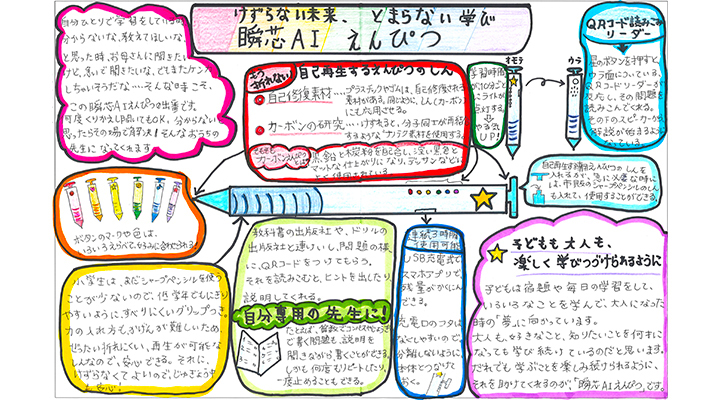 けずらない未来、とまらない学び
瞬芯AI えんぴつ
自分ひとりで学習をしている時
分からないな、教えてほしいな、
と思った時、お母さんに聞きたい
けど、急いで聞きたいな、どきたケンカ
しちゃいそうだな‥‥そんな時こそ、
この瞬芯AIえんぴつの出番です。
何度くりかえし聞いてもOK。分からない
思ったらその場で解決!そんなおうちの
先生になってくれます
もう折れない!
自己再生するえんぴつのしん
自己修復素材‥‥プラスチックやゴムは、自己修復される
素材がある。同じように、しん(カーボン)
にも応用させる。
カーボンの研究‥‥けずれると、分子同士が再結合
するような「ナノテク素材」を使用する。
カーボンえんぴつとは
黒鉛と木炭粉を配合し、深い黒色と
マットな仕上がりになり、デッサンなどに
学習時間
が10分ごと
にライトが
点灯する
やる気
UP!
オモテ
ウラ
QRコード読みこみ
リーダー
星のボタンを押すと、
ウラ面についている、
QRコードリーダーが
反応し、その問題を
読みこんでくれる。
その下のスピーカーから
解説が始まるよう
なっている。
自己再生する瞬芯えんぴつのしんを
入れるが、急に必要な時に
は、市販のシャープペンシルのしん
も入れて、使用することができる。
ボタンのマークや色は、
いろいろえらべて、好みに合わせられる
小学生は、まだシャープペンシルを使う
ことが少ないので、低学年でもにぎり
やすいように、すべりにくいグリップつき。
力の入れ方もかげんが難しいため、
ぜったい折れにくい、再生が可能な
しんなので、安心できる。それに、
けずらなくてよいので、じゅぎょう中
も安心!
教科書の出版社や、ドリルの
出版社と連けいし、問題の横
に、QRコードをつけてもらう。
それを読みこむと、ヒントを出したり、
説明してくれる。
自分専用の先生に!
たとえば、算数でコンパスやじょうぎ
で書く問題も、説明を
聞きながら、書くことができる。
しかも何度もリピートしたり、
一度止めることもできる。
連続3時間
使用可能
USB充電式で
スマホアプリで、
残量がかくにん
できる。
充電口のフタは
なくしやすいので、
分離しないように
本体とつなげて
おく。
子どもも大人も、
楽しく学びつづけられるように
子どもは宿題や毎日の学習をして、
いろいろなことを学んで、大人になった
時の「夢」に向かっています。
大人も、好きなこと、知りたいことを何才に
なっても学び続けているのだと思います。
だれでも学ぶことを楽しみ続けられるように、
それを助けてくれるのが、「瞬芯AIえんぴつ」です。